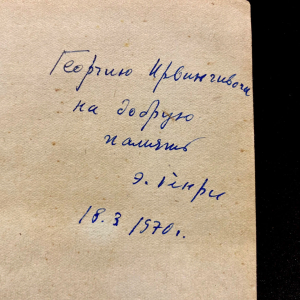 Георгию Ирвинговичу
на добрую
память
Э. Генри
18.3 1970 г.